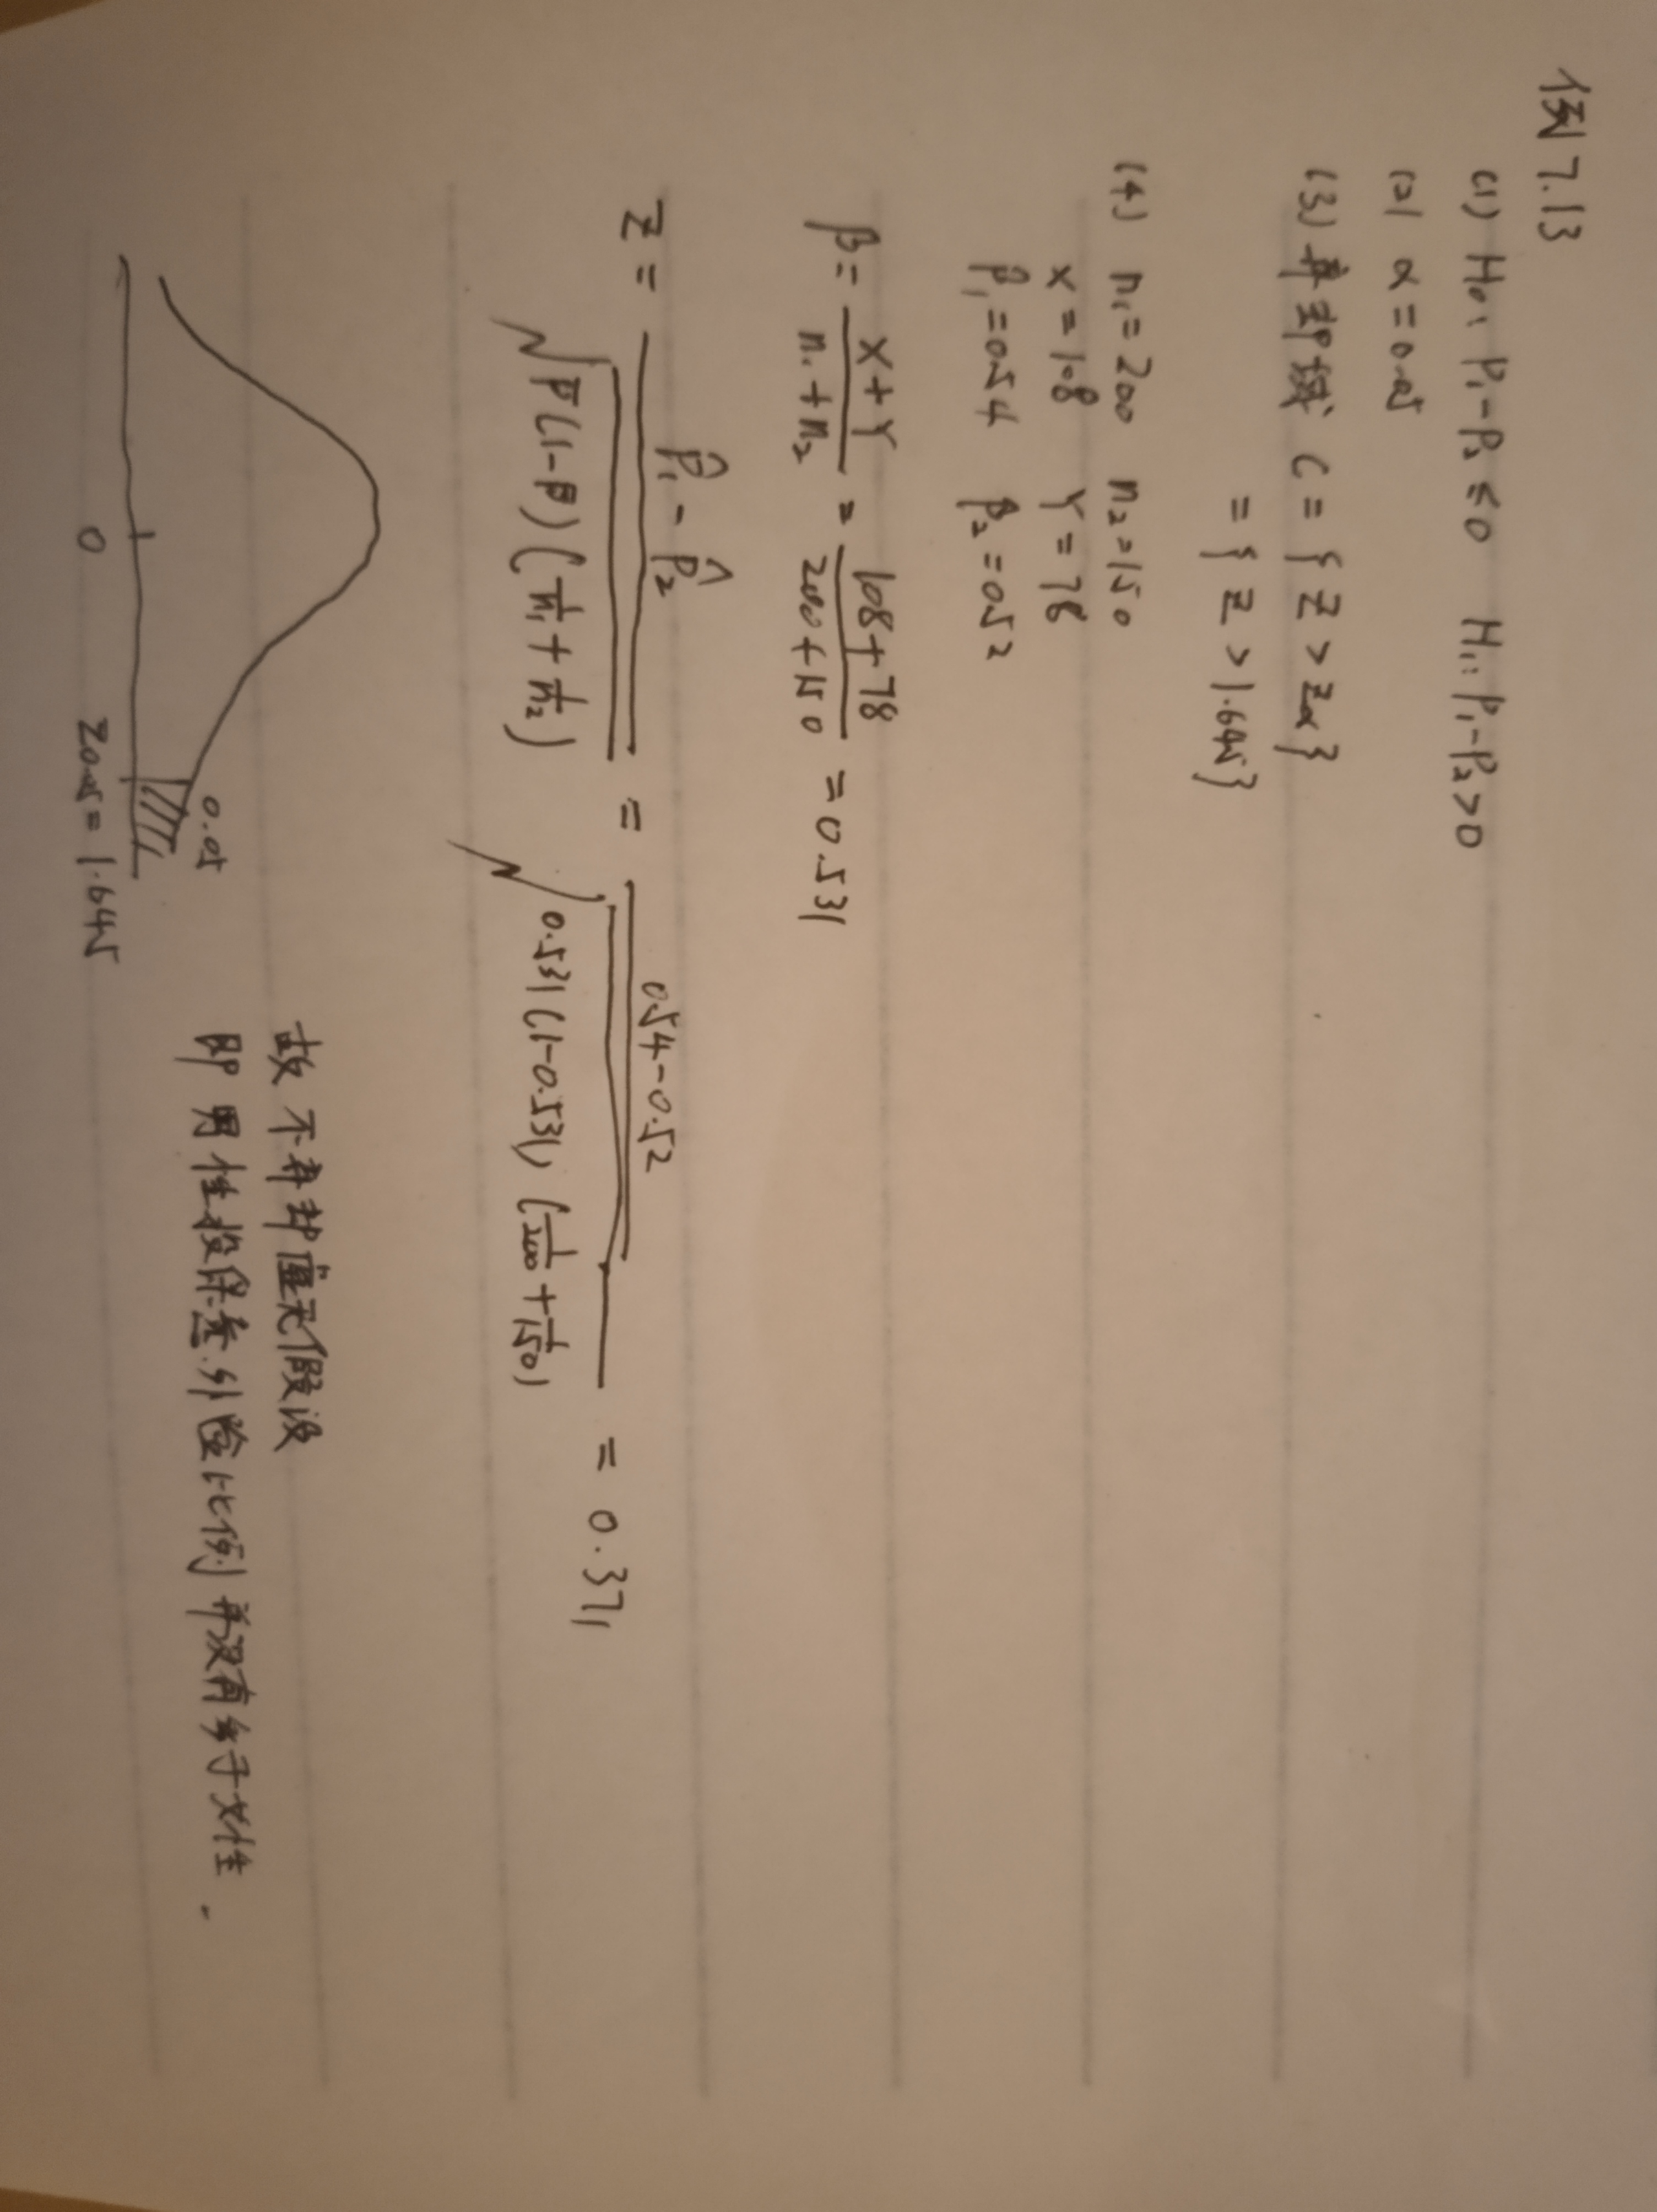 例7.13
(1) H₀: P₁-P₂≤0 H₁: P₁-P₂>0
(2) α=0.05
(3) 弃却域 C = { Z > Zα}
= { Z > 1.645}
(4) n₁=200 n₂=150
X=108 Y=78
p̂₁=0.54 p̂₂=0.52
p̄ = (X+Y)/(n₁+n₂) = (108+78)/(200+150) = 0.531
Z = (p̂₁-p̂₂)/√(p̄(1-p̄)(1/n₁+1/n₂)) = (0.54-0.52)/√(0.531(1-0.531)(1/200+1/150)) = 0.371
0.05
0 Z0.05=1.645
故不弃却虚无假设
即男性投保差引险比例并没有多于女性.